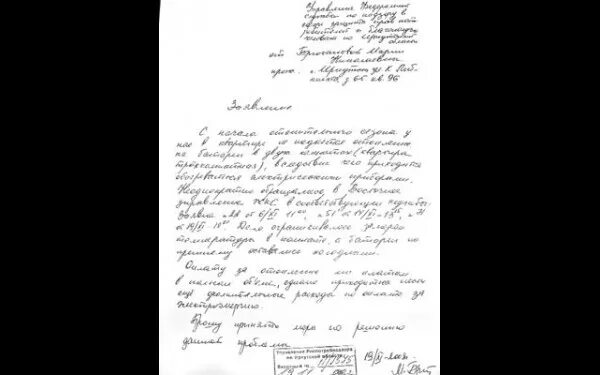 Управление Федеральной
службы по надзору в
защиты прав пот
ребителей и благополучия
человека по Иркутской
области
от Марии
Николаевны
г. Иркутск ул. К.
д 65 кв. 96
Заявление
С начала отопительного сезона у
нас в квартире не подается отопление
на батареи в двух комнатах (квартира
трехкомнатная), в следствие чего приходится
обогреваться электрическими приборами.
Неоднократно обращались в Восточное
управление ЖКС в соответствующие службы.
Заявка от 6/XI 11
от 19/XI Дело ограничивалось замером
температуры в комнате, а батареи по
прежнему оставались холодными.
Оплату за отопление мы платим
в полном объёме, однако приходится нести
ещё дополнительные расходы по оплате за
электроэнергию.
Прошу принять меры по решению
данной проблемы.
Управление Роспотребнадзора
по Иркутской области
Входящий №
19/XI